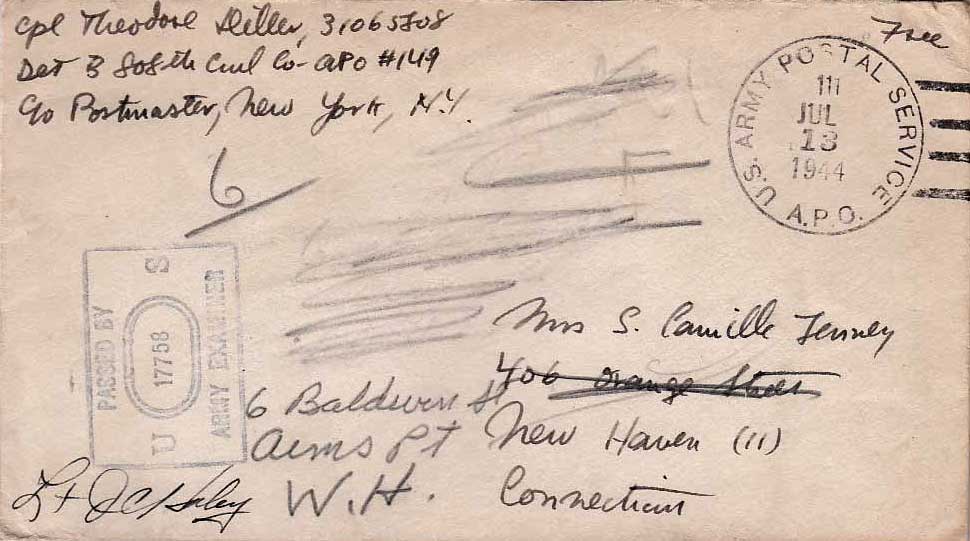 Cpl Theodore Diller, 31065708
Det 3 808th Cml Co - APO #149
c/o Postmaster, New York, N.Y.
Free
U.S. ARMY POSTAL SERVICE
JUL
13
1944
A.P.O.
6
PASSED BY
U 17758 S
ARMY EXAMINER
Mrs S. Camille Tenney
406 Orange Street
New Haven (11)
Connecticut
6 Baldwin St
W.H.
Lt